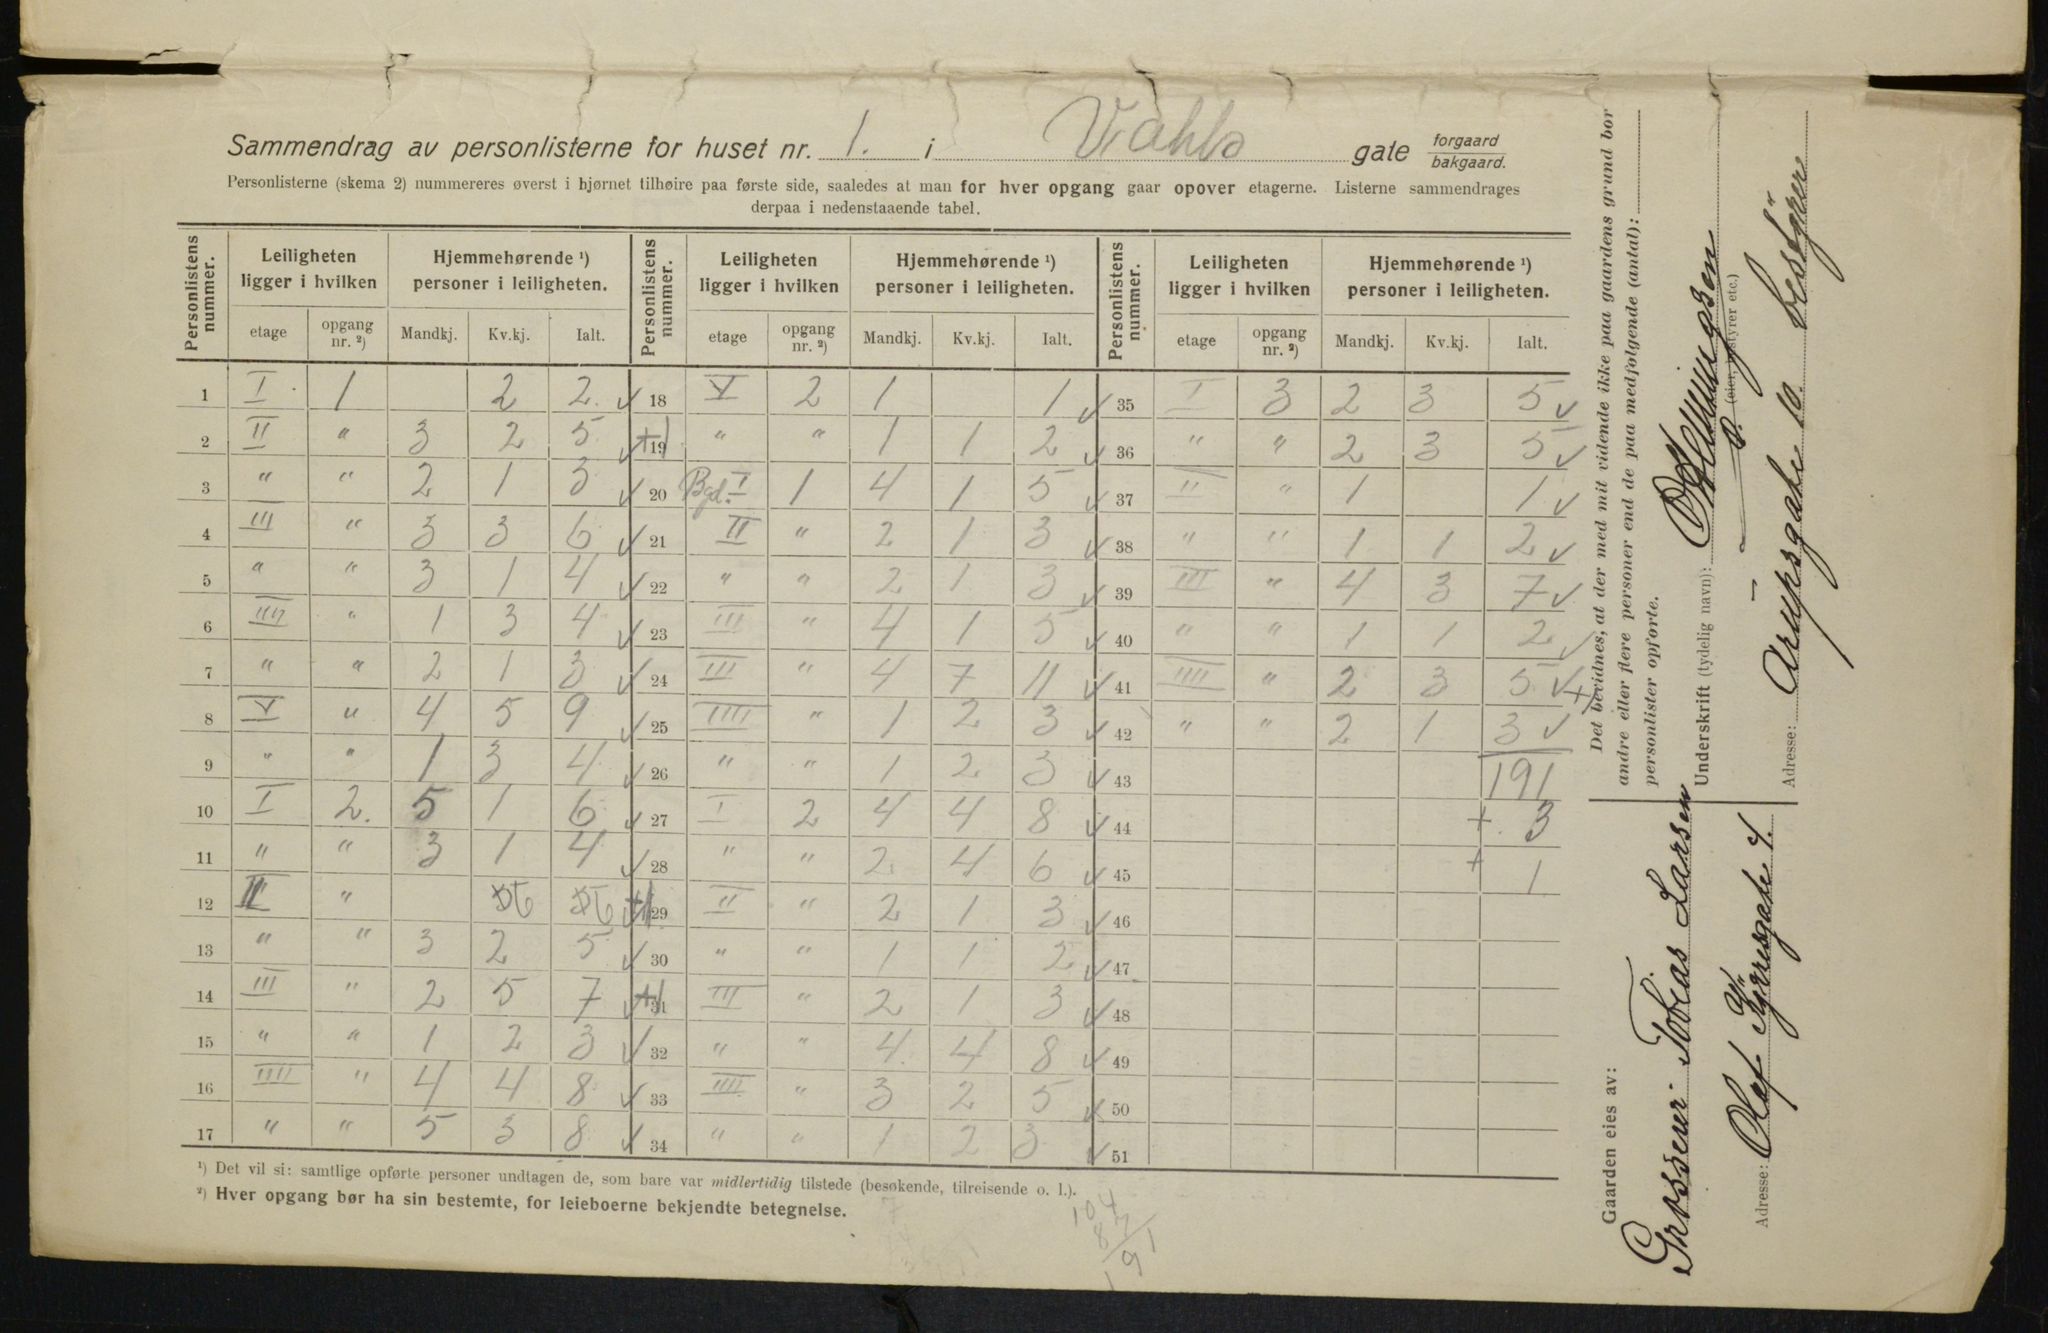 Sammendrag av personlisterne for huset nr. 1. i Vahls gate forgaard bakgaard.
Personlisterne (skema 2) nummereres øverst i hjørnet tilhøire paa første side, saaledes at man for hver opgang gaar opover etagerne. Listerne sammendrages
derpaa i nedenstaaende tabel.
Personlistens nummer. Leiligheten ligger i hvilken etage opgang nr. ²) Hjemmehørende ¹) personer i leiligheten. Mandkj. Kv.kj. Ialt.
1 I 1 2 2 ✓
2 II " 3 2 5 ✓ +1
3 " " 2 1 3 ✓
4 III " 3 3 6 ✓
5 " " 3 1 4 ✓
6 IIII " 1 3 4 ✓
7 " " 2 1 3 ✓
8 V " 4 5 9 ✓
9 " " 1 3 4 ✓
10 I 2. 5 1 6 ✓
11 " " 3 1 4 ✓
12 II " 6 6 ✓ +1
13 " " 3 2 5 ✓
14 III " 2 5 7 ✓ +1
15 " " 1 2 3 ✓
16 IIII " 4 4 8 ✓
17 " " 5 3 8 ✓
Personlistens nummer. Leiligheten ligger i hvilken etage opgang nr. ²) Hjemmehørende ¹) personer i leiligheten. Mandkj. Kv.kj. Ialt.
18 V 2 1 1 ✓
19 " " 1 1 2 ✓
20 Bgd. I 1 4 1 5 ✓
21 II " 2 1 3 ✓
22 " " 2 1 3 ✓
23 III " 4 1 5 ✓
24 III " 4 7 11 ✓
25 IIII " 1 2 3 ✓
26 " " 1 2 3 ✓
27 I 2 4 4 8 ✓
28 " " 2 4 6 ✓
29 II " 2 1 3 ✓
30 " " 1 1 2 ✓
31 III " 2 1 3 ✓
32 " " 4 4 8 ✓
33 IIII " 3 2 5 ✓
34 " " 1 2 3 ✓
Personlistens nummer. Leiligheten ligger i hvilken etage opgang nr. ²) Hjemmehørende ¹) personer i leiligheten. Mandkj. Kv.kj. Ialt.
35 I 3 2 3 5 ✓
36 " " 2 3 5 ✓
37 II " 1 1 ✓
38 " " 1 1 2 ✓
39 III " 4 3 7 ✓
40 " " 1 1 2 ✓
41 IIII " 2 3 5 ✓ +
42 " " 2 1 3 ✓
43 191
44 + 3
45 + 1
46
47
48
49
50
51
¹) Det vil si: samtlige opførte personer undtagen de, som bare var midlertidig tilstede (besøkende, tilreisende o. l.).
²) Hver opgang bør ha sin bestemte, for leieboerne bekjendte betegnelse.
104
87
191
Det bevidnes, at der med mit vidende ikke paa gaardens grund bor
andre eller flere personer end de paa medfølgende (antal):
personlister opførte.
Underskrift (tydelig navn): O. Hemmingsen
(eier, bestyrer etc.)
Adresse: Arupsgate 10. bestyrer
Gaarden eies av:
Grosserer Tobias Larsen
Adresse: Olaf Kyrresgate 4.